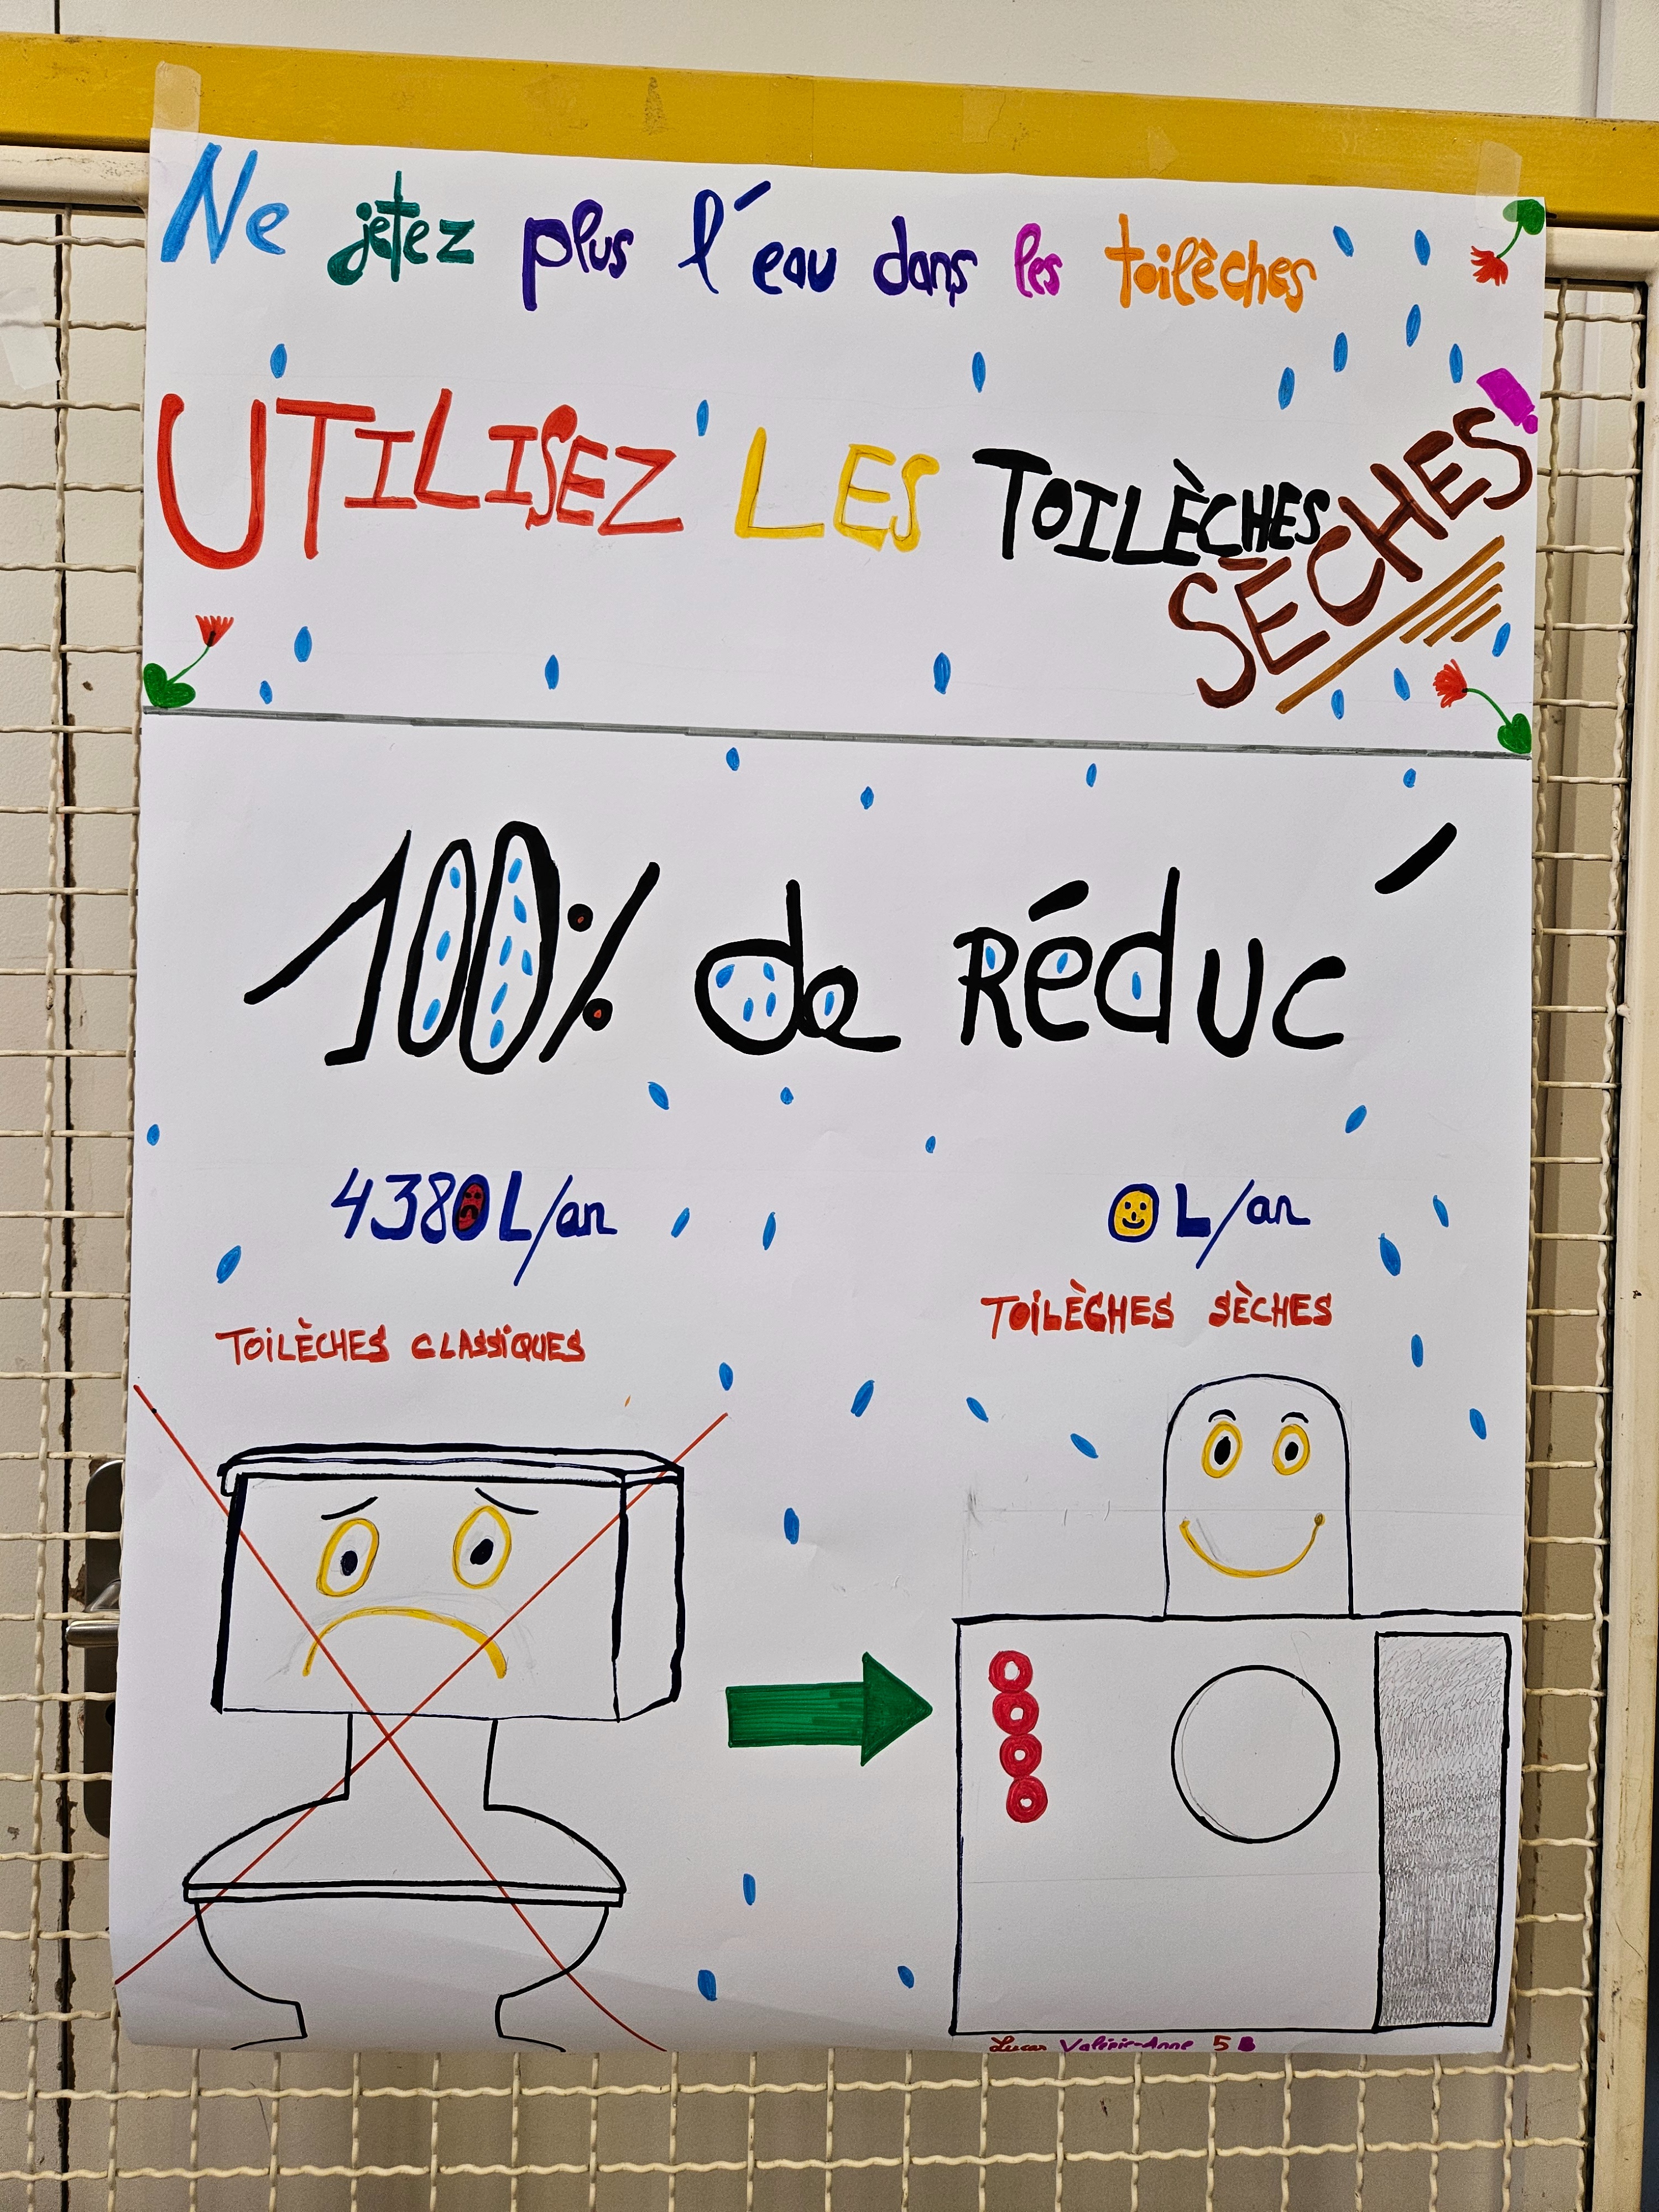 Ne jetez plus l'eau dans les toilèches
UTILISEZ LES TOILÈCHES SÈCHES!
100% de Réduc'
4380L/an
0 L/an
TOILÈCHES CLASSIQUES
TOILÈCHES SÈCHES
Lucas Valérie-Anne 5B